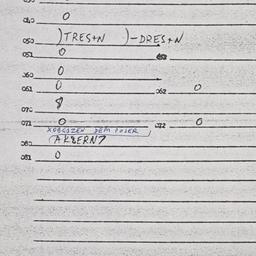 040 0
050 )TRES+N )-DRES+N
051 0 052
060 0
061 0 062 0
070 8
071 0 072 0
080 (AKBERN7
081 0